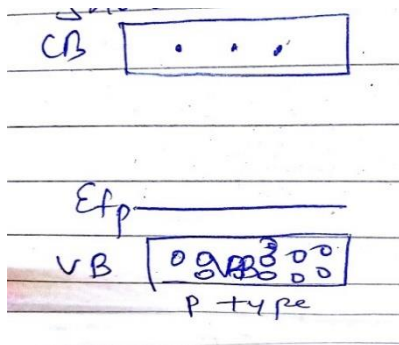 CB
Efp
VB
P type